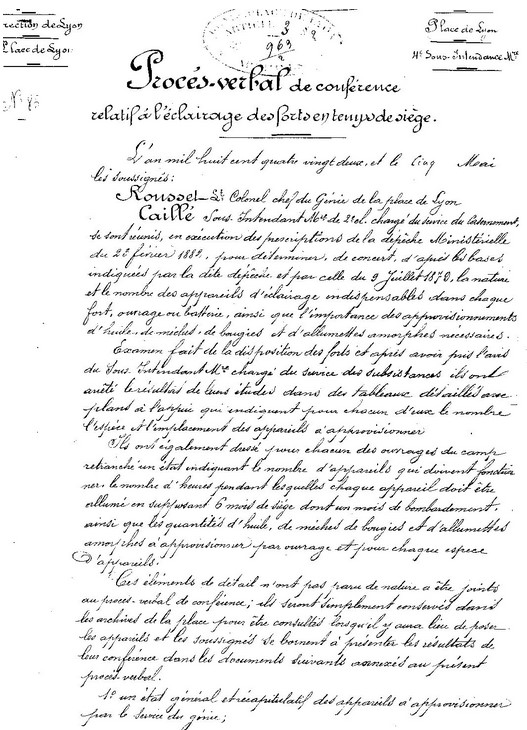 rection de Lyon
Place de Lyon
N° 85
3
963
2
Place de Lyon
4e Sous-Intendance Mre
Procès-verbal de conférence
relatif à l'éclairage des forts en temps de siège.
L'an mil huit cent quatre vingt deux, et le Cinq Mai
les soussignés:
Rousset Lt Colonel chef du Génie de la place de Lyon
Caillé Sous-Intendant Mre de 2e cl. chargé du service du Casernement,
se sont réunis, en exécution des prescriptions de la dépêche Ministérielle
du 22 février 1882, pour déterminer, de concert, d'après les bases
indiquées par la dite dépêche et par celle du 9 Juillet 1879, la nature
et le nombre des appareils d'éclairage indispensables dans chaque
fort, ouvrage ou batterie, ainsi que l'importance des approvisionnements
d'huile, de mèches, de bougies et d'allumettes amorphes nécessaires.
Examen fait de la disposition des forts et après avoir pris l'avis
du Sous-Intendant Mre chargé du service des subsistances ils ont
arrêté le résultat de leurs études dans des tableaux détaillés avec
plans à l'appui qui indiquent pour chacun d'eux le nombre
l'espèce et l'emplacement des appareils à approvisionner
Ils ont également dressé pour chacun des ouvrages du camp
retranché un état indiquant le nombre d'appareils qui doivent fonction
ner, le nombre d'heures pendant lesquelles chaque appareil doit être
allumé en supposant 6 mois de siège dont un mois de bombardement,
ainsi que les quantités d'huile, de mèches de bougies et d'allumettes
amorphes à approvisionner par ouvrage et pour chaque espèce
d'appareils.
Ces éléments de détail n'ont pas paru de nature à être joints
au procès-verbal de conférence; ils seront simplement conservés dans
les archives de la place pour être consultés lorsqu'il y aura lieu de poser
les appareils et les soussignés se bornent à présenter les résultats de
leur conférence dans les documents suivants annexés au présent
procès verbal.
1° un état général et récapitulatif des appareils à approvisionner
par le service du génie;